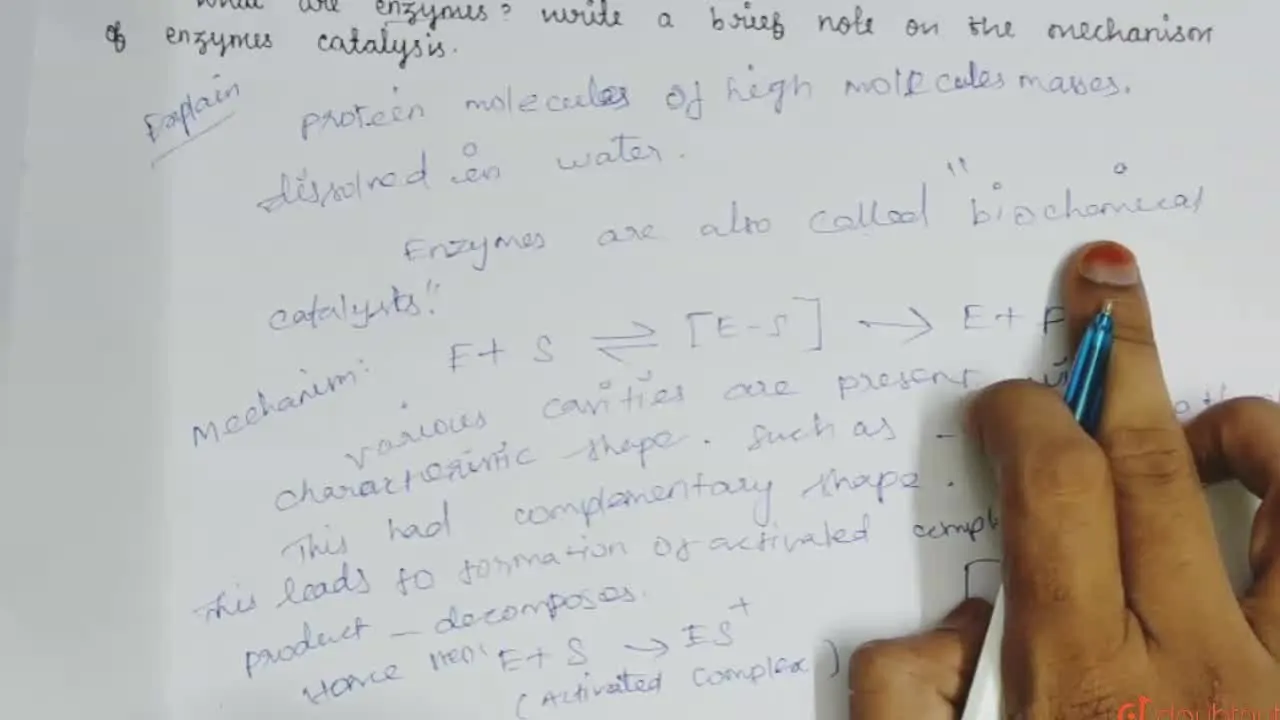 What are enzymes? Write a brief note on the mechanism
of enzymes catalysis.
Explain
protein molecules of high molecules masses.
dissolved in water.
Enzymes are also called "biochemical
catalysts."
Mechanism: E + S ⇌ [E-S] → E + P
various cavities are present
characteristic shape. such as -
This had complementary shape.
This leads to formation of activated
product - decomposes.
Hence E + S → ES+
(Activated complex)
doubtnut